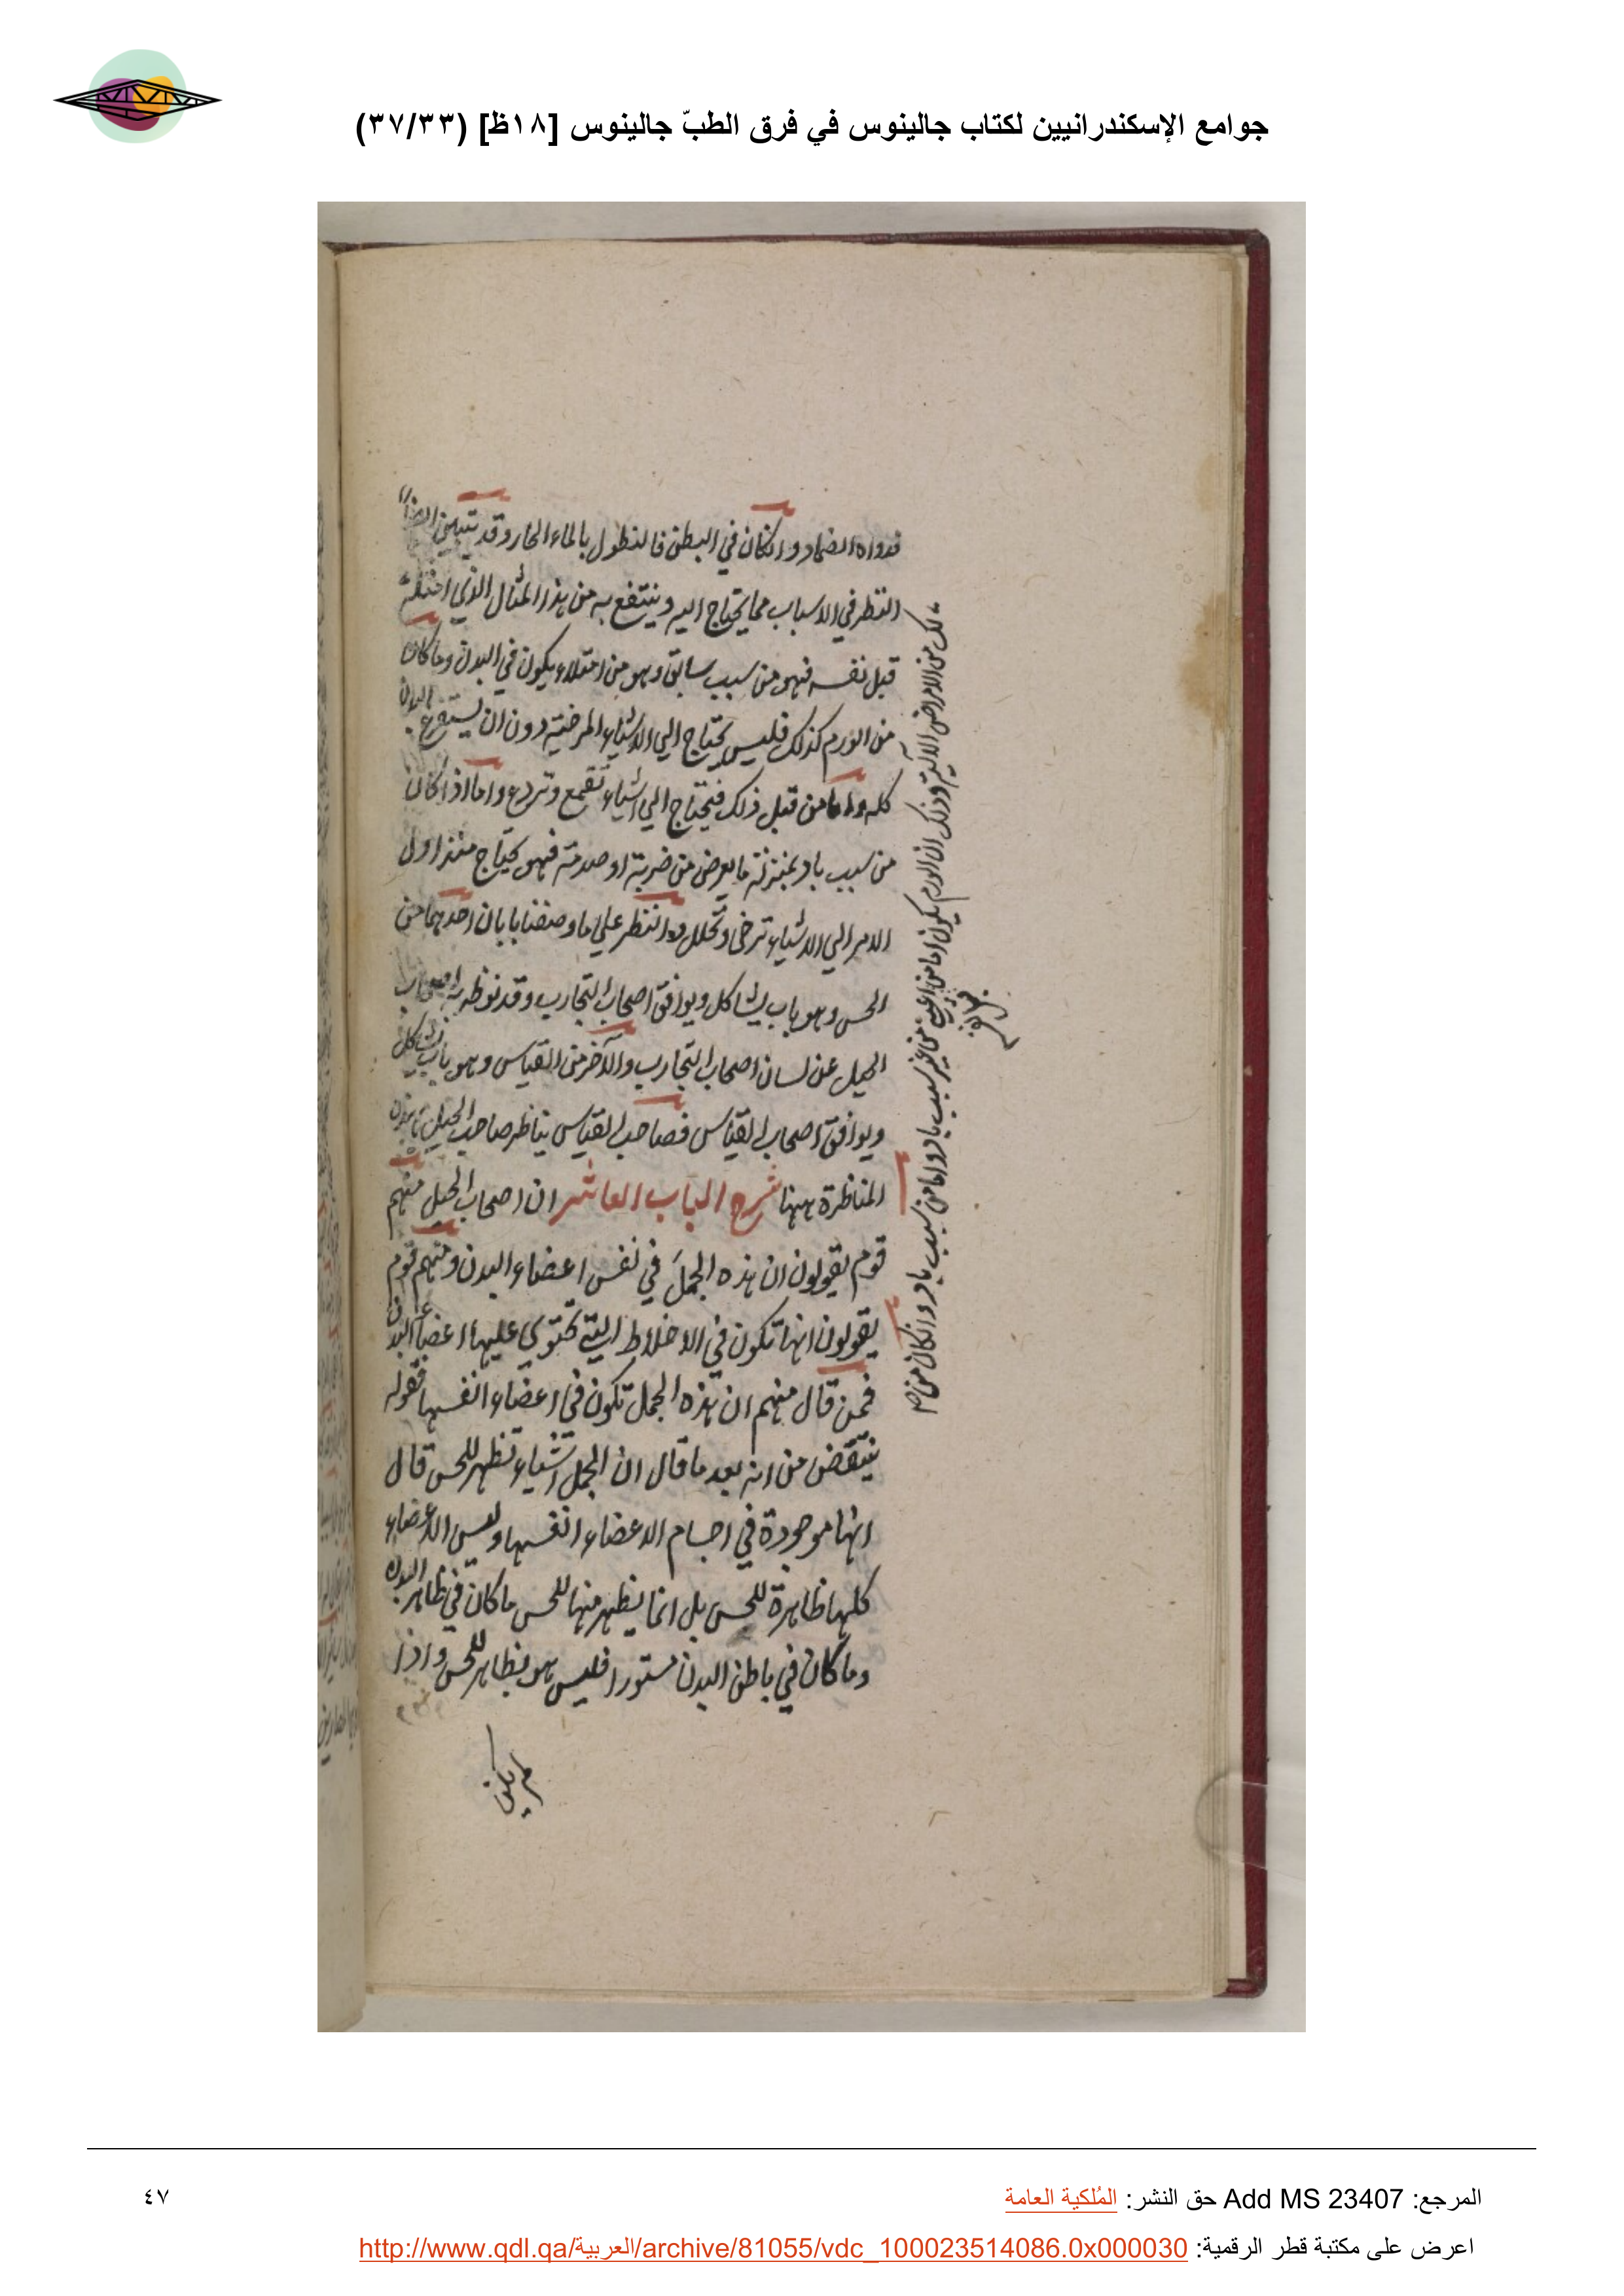 جوامع الإسكندرانيين لكتاب جالينوس في فرق الطبّ جالينوس [١٨ظ] (٣٧/٣٣)
فدواه الضماد وان كان في البطن فالنطول بالماء الحار وقد تبين ايضا ان
النظر في الاسباب مما يحتاج اليه وينتفع به من هذا المثال الذي
قبل نفسه فهو من سبب سابق وهو من امتلاء يكون في البدن وما كان
من الورم كذلك فليس يحتاج الي الاشياء المرخية دون ان يستفرغ البدن
كله واما من قبل ذلك فيحتاج الي اشياء تقمع وتردع واما اذا كان
من سبب باد بمنزلة ما يعرض من ضربة او صدمة فهو يحتاج منذ اول
الامر الي الاشياء ترخى وتحلل والنظر علي ما وصفنا بابان احدهما من
الحس وهو باب يشاكل ويوافق اصحاب التجارب وقد نوظر به اصحاب
الحيل عن لسان اصحاب التجارب والآخر من القياس وهو باب يشاكل
ويوافق اصحاب القياس فصاحب القياس يناظر صاحب الحيل
المناظرة ههنا شرح الباب العاشر ان اصحاب الحيل منهم
قوم يقولون ان هذه الجمل في نفس اعضاء البدن ومنهم قوم
يقولون انها تكون في الاخلاط التي تحتوي عليها اعضاء البدن
فمن قال منهم ان هذه الجمل تكون في اعضاء انفسها فقوله
ينتقض من انه بعد ما قال ان الجمل اشياء تظهر للحس قال
انها موجودة في اجسام الاعضاء انفسها وليس الاعضاء
كلها ظاهرة للحس بل انما يظهر منها للحس ما كان في ظاهر البدن
وما كان في باطن البدن مستورا فليس هو بظاهر للحس واذا
لم يكن
ذلك من الامراض الآلية وذلك ان الورم يكون اما من من غير سبب باد واما من سبب باد وان كان من
المرجع: Add MS 23407 حق النشر: المُلكية العامة
٤٧
اعرض على مكتبة قطر الرقمية: http://www.qdl.qa/العربية/archive/81055/vdc_100023514086.0x000030